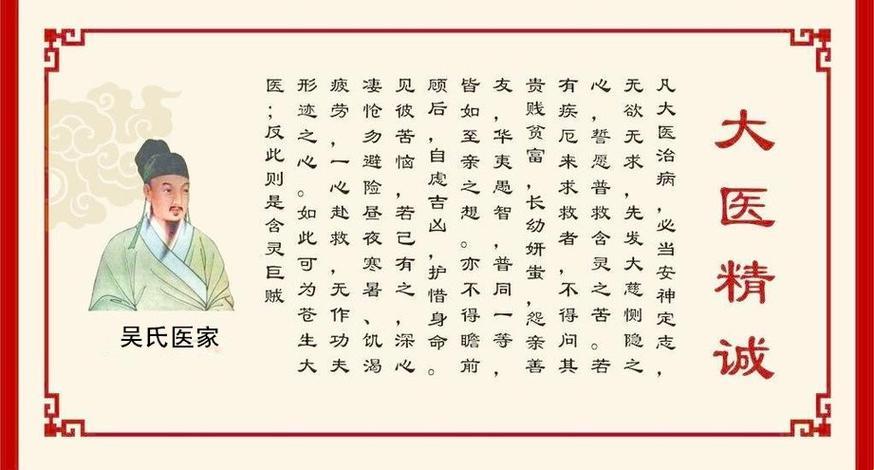 大医精诚
凡大医治病，必当安神定志，
无欲无求，先发大慈恻隐之
心，誓愿普救含灵之苦。若
有疾厄来求救者，不得问其
贵贱贫富，长幼妍蚩，怨亲善
友，华夷愚智，普同一等，
皆如至亲之想。亦不得瞻前
顾后，自虑吉凶，护惜身命。
见彼苦恼，若己有之，深心
凄怆勿避险昼夜寒暑、饥渴
疲劳，一心赴救，无作功夫
形迹之心。如此可为苍生大
医；反此则是含灵巨贼
吴氏医家